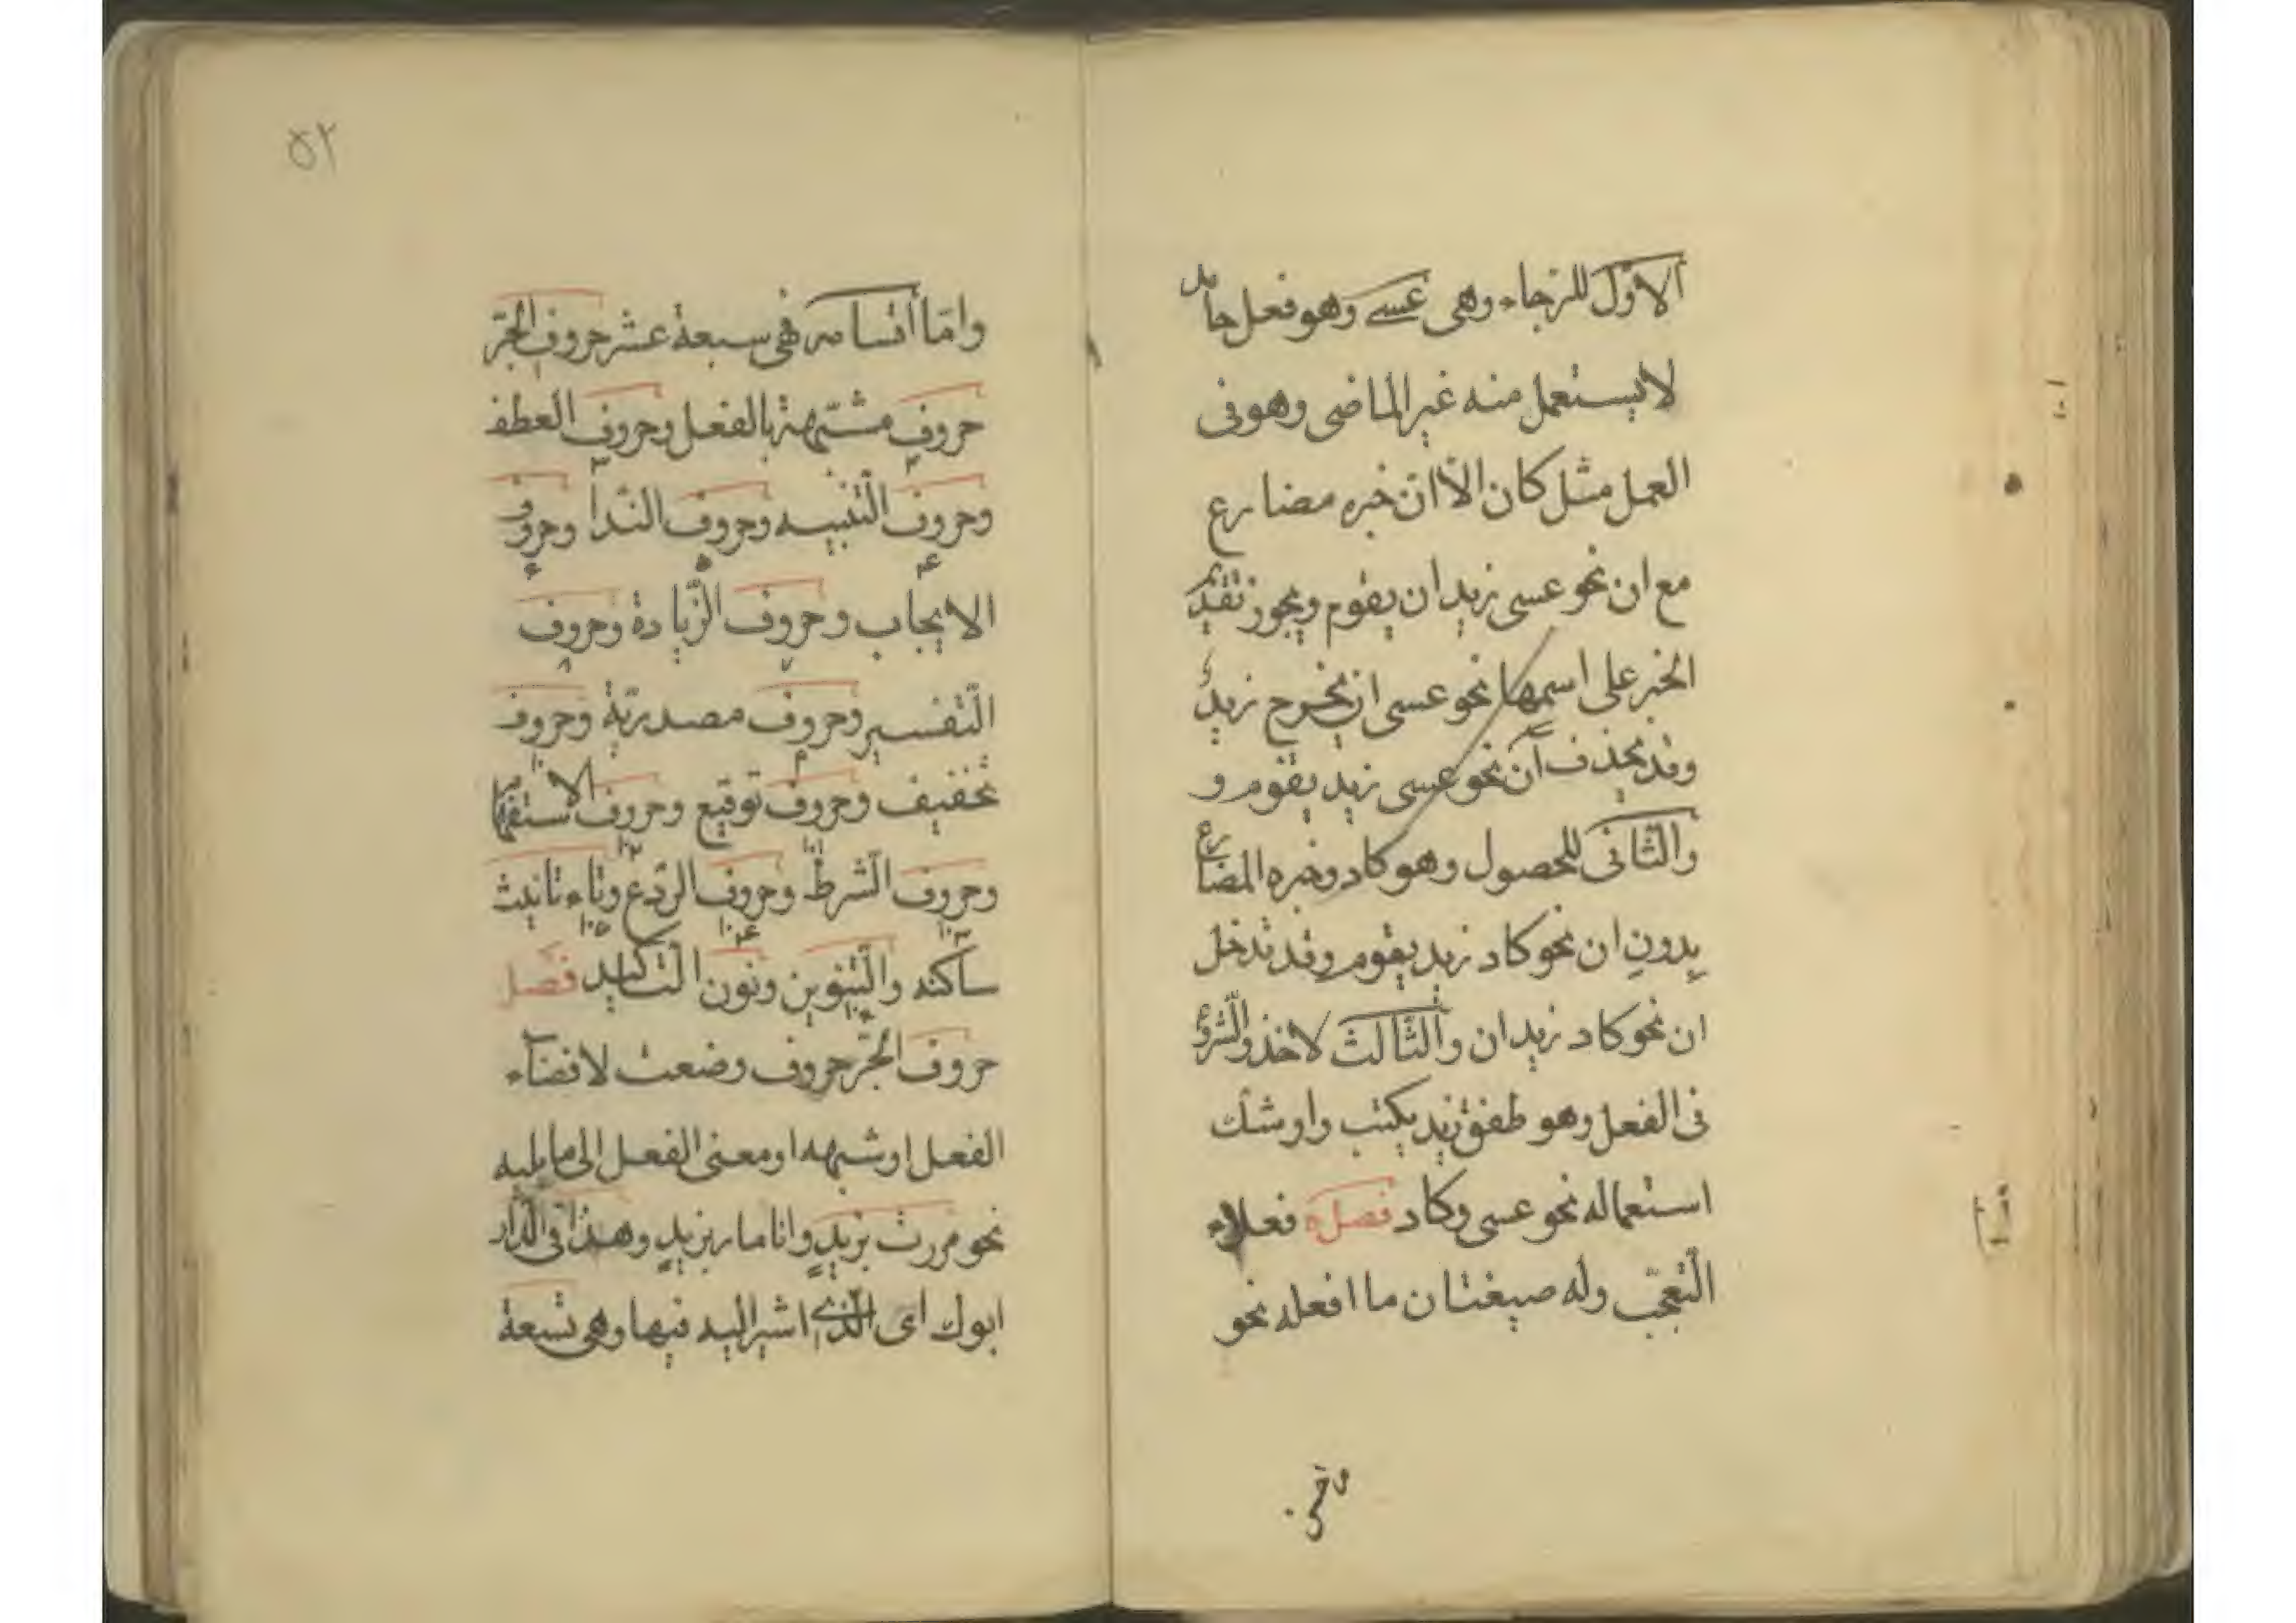 الاوّل للرجاء وهى عسى وهو فعل جامد
لا يستعمل منه غير الماضى وهو فى
العمل مثل كان الاّ انّ خبره مضارع
مع ان نحو عسى زيد ان يقوم ويجوز تقديم
الخبر على اسمها نحو عسى ان يخرج زيدٌ
وقد يحذف أن نحو عسى زيد يقوم و
والثّانى للحصول وهو كاد وخبره المضارع
بدون ان نحو كاد زيد يقوم وقد تدخل
ان نحو كاد زيد ان والثّالث لاخذ والشّروع
فى الفعل وهو طفق زيد يكتب واوشك
استعماله نحو عسى وكاد فصل فعلاء
التّعجّب وله صيغتان ما افعله نحو
٥٢
وامّا أقسامه فهى سبعة عشر حروف الجرّ
حروف مشبّهة بالفعل وحروف العطف
٢ ٣
وحروف التّنبيه وحروف النّدا وحروف
۴ ۵ ۶
الايجاب وحروف الزّيادة وحروف
٧ ٨
التّفسير وحروف مصدريّة وحروف
٩ ١٠
تخفيف وحروف توقيع وحروف الاستفهام
وحروف الشّرط وحروف الرّدع وتاء تانيث
ساكنه والتّنوين ونون التّاكيد فصل
حروف الجرّ حروف وضعت لافضاء
الفعل او شبهه او معنى الفعل الى ما يليه
نحو مررت بزيدٍ وانا مار بزيدٍ وهذا فى الدّار
ابوك اى الّذى اشير اليه فيها وهى تسعة